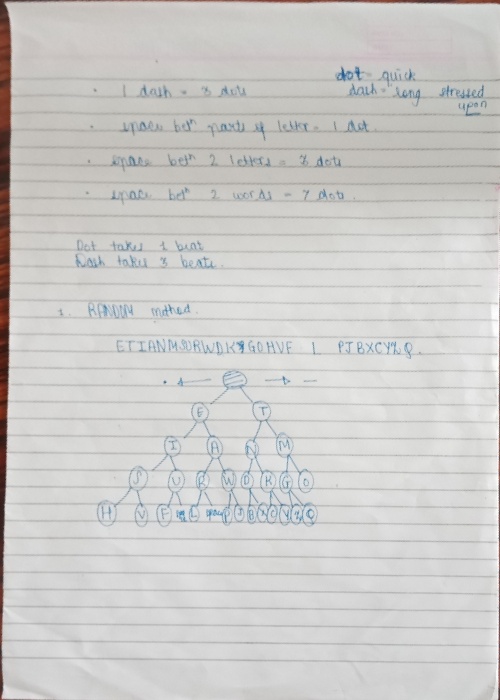 dot = quick
• 1 dash = 3 dots
dash = long stressed upon
• space betn parts of letter = 1 dot.
• space betn 2 letters = 3 dots
• space betn 2 words = 7 dots.
Dot takes 1 beat
Dash takes 3 beats.
1. RANDOM method.
ETIANM RWDK GOHVF L PJBXCYZQ.
• ← → —
E T
I A N M
S U R W D K G O
H V F L space P J B X C Y Z Q